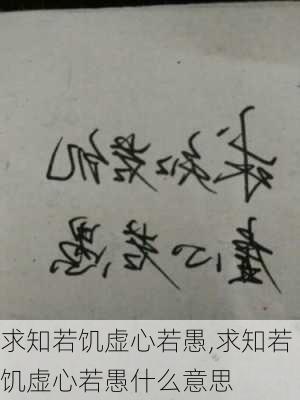 求知若饥
虚心若愚
求知若饥虚心若愚,求知若
饥虚心若愚什么意思